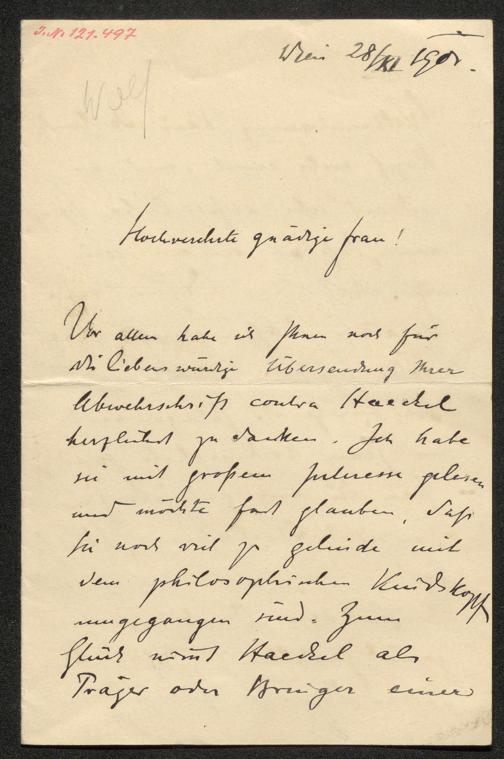 I.N. 121.497
Wien 28/XI 1901.
Wolf
Hochverehrte gnädige Frau!
Vor allem habe ich Ihnen noch für
die liebenswürdige Übersendung Ihrer
Abwehrschrift contra Haeckel
herzlichst zu danken. Ich habe
sie mit großem Interesse gelesen
und möchte fast glauben, daß
Sie noch viel zu gelinde mit
dem philosophischen Kindskopf
umgegangen sind. Zum
Glück nimmt Haeckel als
Träger oder Bringer einer